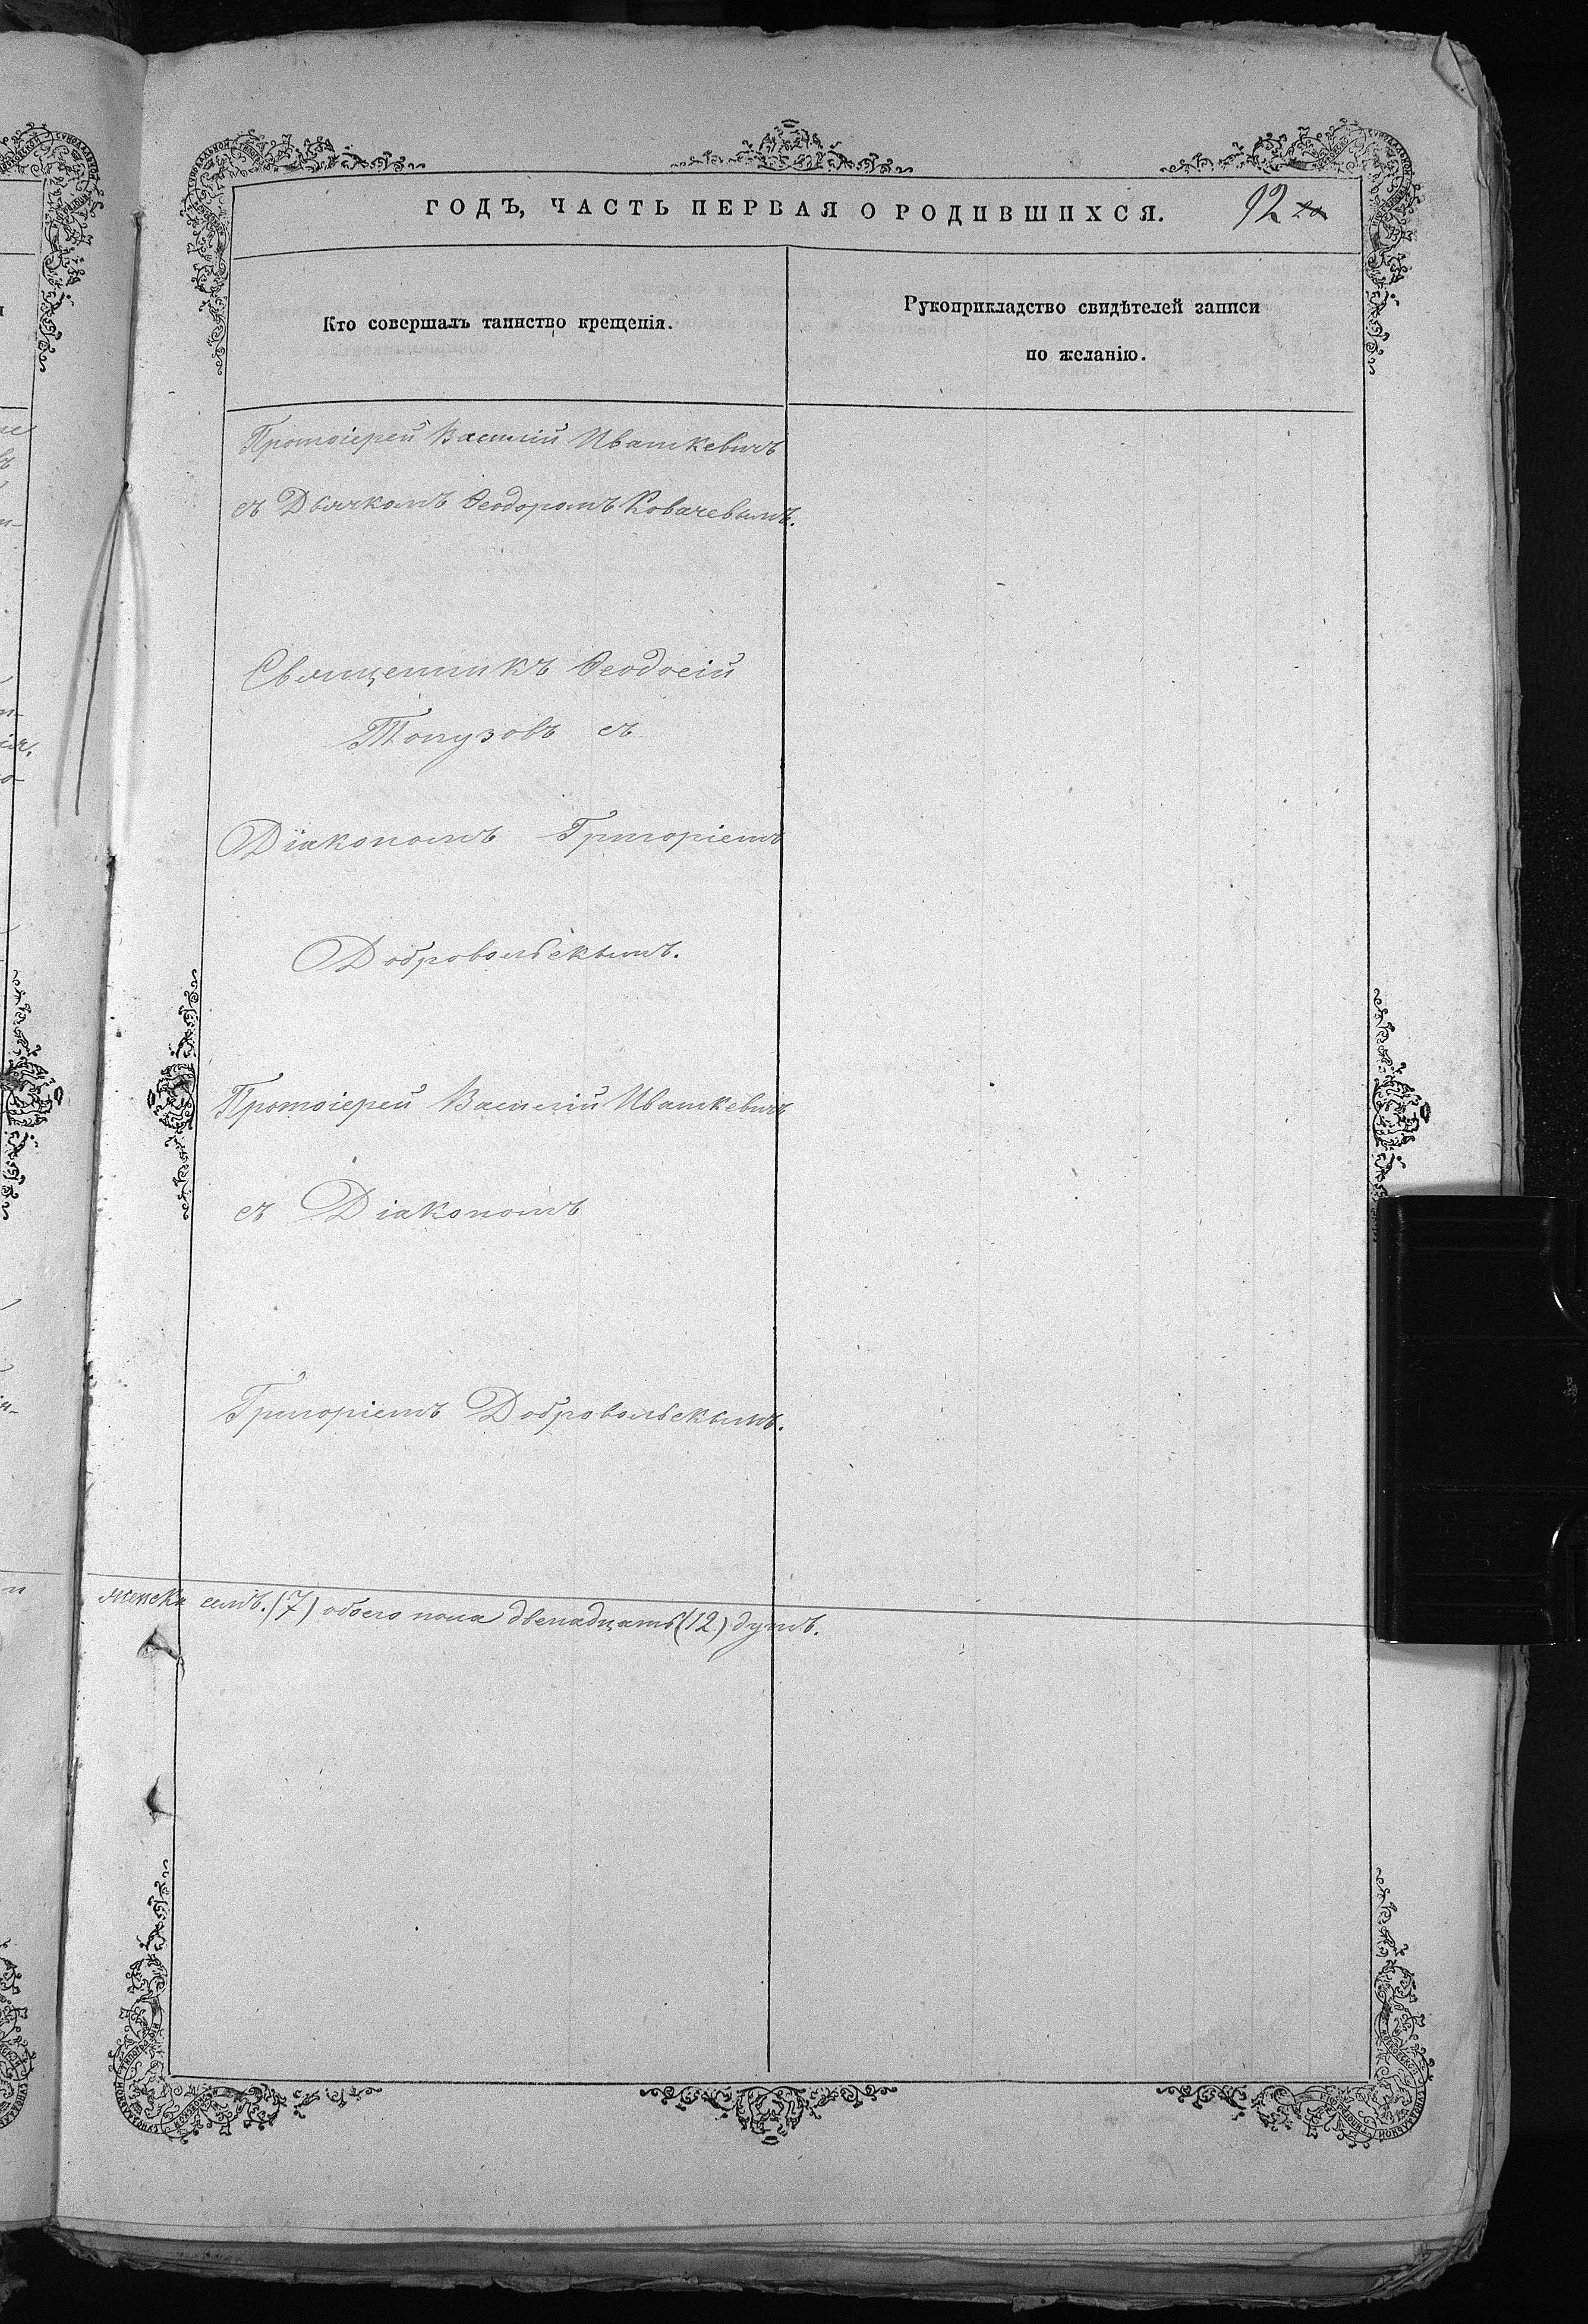 ГОДЪ, ЧАСТЬ ПЕРВАЯ О РОДИВШИХСЯ. 92
Кто совершалъ таинство крещенія.
Рукоприкладство свидѣтелей записи
по желанію.
Протоіерей Василій Ивашкевичъ
съ Дьячкомъ Ѳеодоромъ Ковачевымъ.
Священникъ Ѳеодосій
Топузовъ съ
Діакономъ Григоріемъ
Добровольскимъ.
Протоіерей Василій Ивашкевичъ
съ Діакономъ
Григоріемъ Добровольскимъ.
женска семь. (7) обоего пола двенадцать (12) душъ.